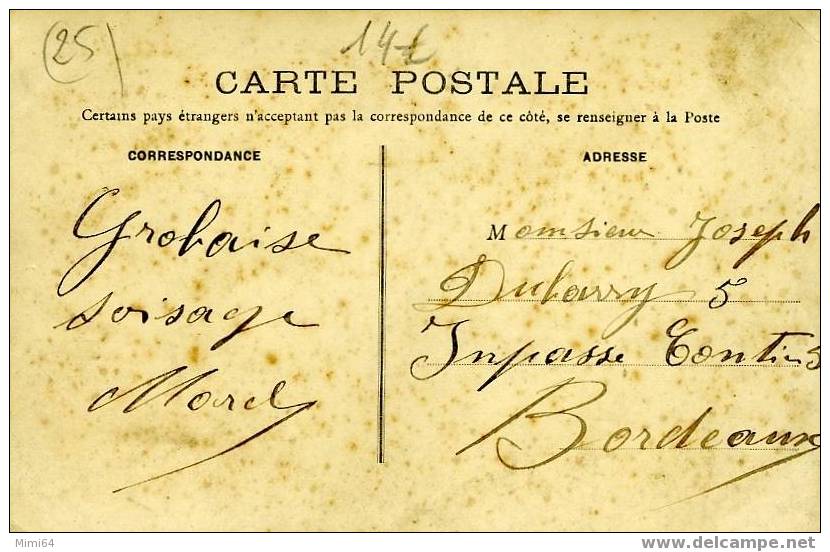 (25)
14€
CARTE POSTALE
Certains pays étrangers n'acceptant pas la correspondance de ce côté, se renseigner à la Poste
CORRESPONDANCE
Grobaise
soisage
Marcel
ADRESSE
Monsieur Joseph
Dubarry 5
Inpasse
Bordeaux
Mimi64
delcampe.net